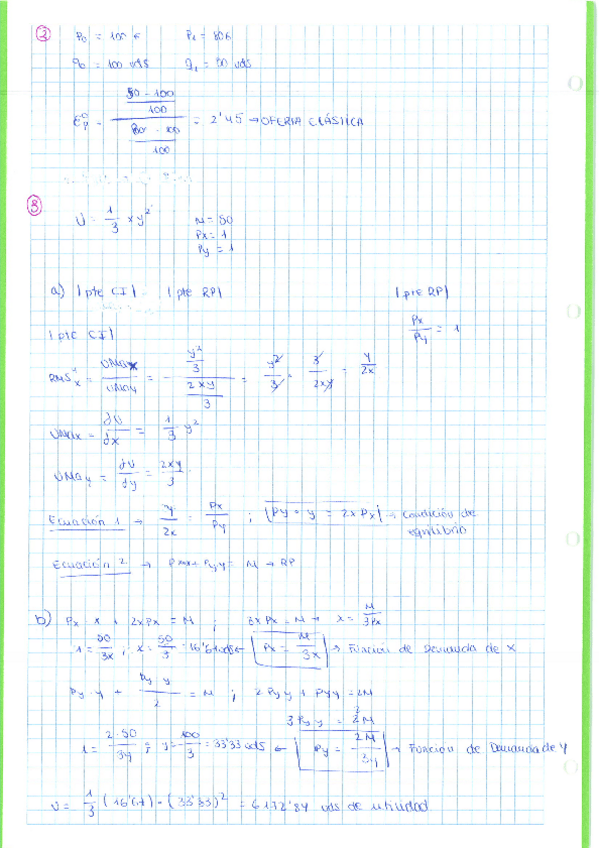 ② P₀ = 100 € P₁ = 80€
q₀ = 100 uds q₁ = 50 uds
= \frac{\frac{50 - 100}{100}}{\frac{80 - 100}{100}} = 2'45 → OFERTA ELÁSTICA
③ U = \frac{1}{3} x y² M = 50
Px = 1
Py = 1
a) |pte CI| |pte RP| |pte RP|
\frac{Px}{Py} = 1
|pte CI|
= \frac{UMax}{UMay} = \frac{\frac{y²}{3}}{\frac{2xy}{3}} = \frac{y²}{3} · \frac{3}{2xy} = \frac{y}{2x}
UMax = \frac{dU}{dx} = \frac{1}{3} y²
UMay = \frac{dU}{dy} = \frac{2xy}{3}
Ecuación 1 → \frac{y}{2x} = \frac{Px}{Py} ; |Py · y = 2x Px| → Condición de
equilibrio
Ecuación 2 → Px·x + Py·y = M → RP
b) Px · x + 2xPx = M ; 3xPx = M → x = \frac{M}{3Px}
1 = \frac{50}{3x} ; x = \frac{50}{3} = 16'6 uds ← Px = \frac{M}{3x} → Función de Demanda de X
Py · y + \frac{Py y}{2} = M ; 2Py y + Py y = 2M
3Py y = 2M
1 = \frac{2·50}{3y} ; y = \frac{100}{3} = 33'33 uds ← Py = \frac{2M}{3y} → Función de Demanda de Y
U = \frac{1}{3} (16'6) · (33'33)² = 6172'84 uds de utilidad